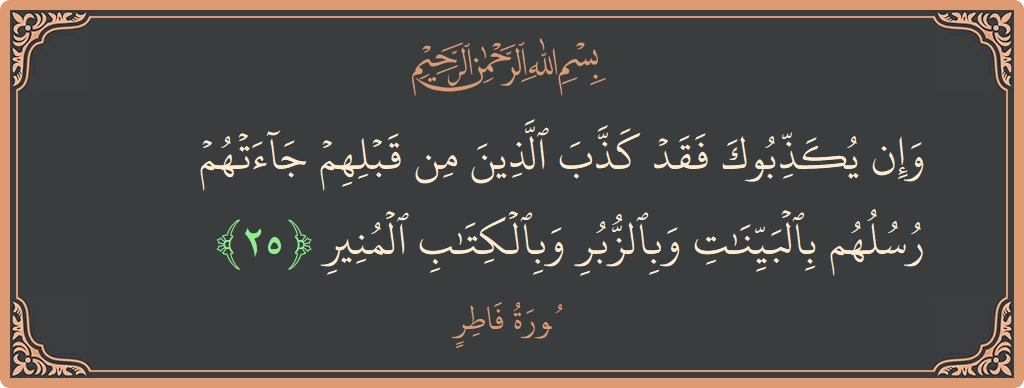 بِسْمِ اللَّهِ الرَّحْمَٰنِ الرَّحِيمِ
وَإِن يُكَذِّبُوكَ فَقَدۡ كَذَّبَ ٱلَّذِينَ مِن قَبۡلِهِمۡ جَآءَتۡهُمۡ
رُسُلُهُم بِٱلۡبَيِّنَٰتِ وَبِٱلزُّبُرِ وَبِٱلۡكِتَٰبِ ٱلۡمُنِيرِ ﴿٢٥﴾
سُورَةُ فَاطِرٍ